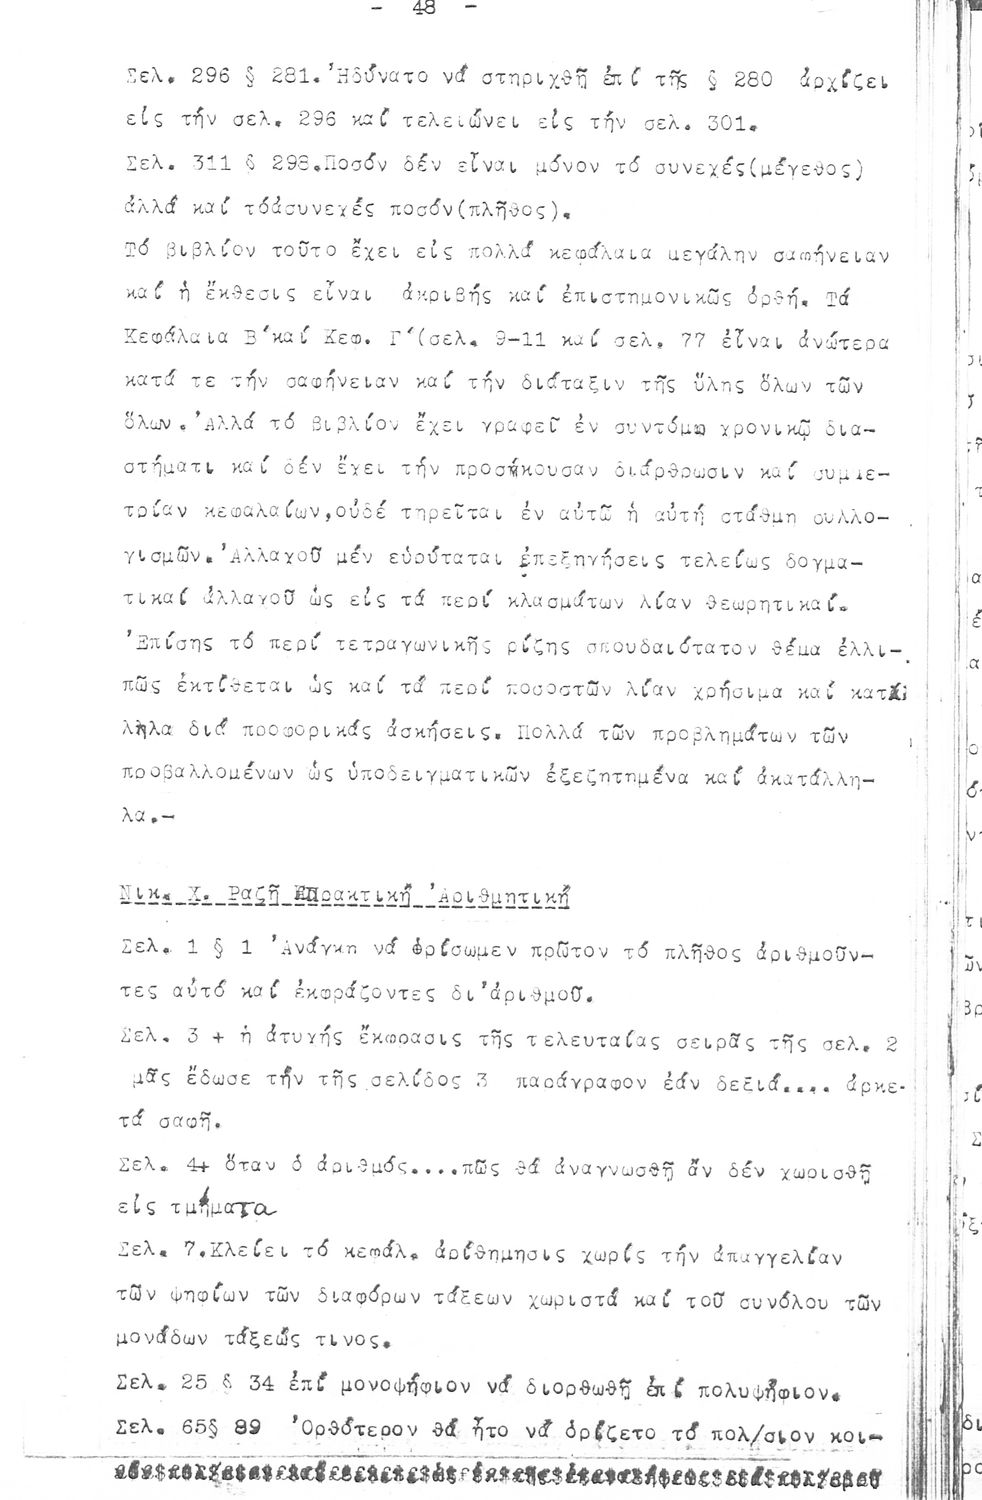 - 48 -
Σελ. 296 § 281.Ἠδύνατο νά στηριχθῇ ἐπί τῆς § 280 ἀρχίζει
εἰς τήν σελ. 296 καί τελειώνει εἰς τήν σελ. 301.
Σελ. 311 § 298.Ποσόν δέν εἶναι μόνον τό συνεχές(μέγεθος)
ἀλλά καί τόἀσυνεχές ποσόν(πλῆθος).
Τό βιβλίον τοῦτο ἔχει εἰς πολλά κεφάλαια μεγάλην σαφήνειαν
καί ἡ ἔκθεσις εἶναι ἀκριβής καί ἐπιστημονικῶς ὀρθή. Τά
Κεφάλαια Β΄καί Κεφ. Γ΄(σελ. 9-11 καί σελ. 77 εἶναι ἀνώτερα
κατά τε τήν σαφήνειαν καί τήν διάταξιν τῆς ὕλης ὅλων τῶν
ὅλων.Ἀλλά τό βιβλίον ἔχει γραφεῖ ἐν συντόμῳ χρονικῷ δια-
στήματι καί δέν ἔχει τήν προσήκουσαν διάρθρωσιν καί συμμε-
τρίαν κεφαλαίων,οὐδέ τηρεῖται ἐν αὐτῷ ἡ αὐτή στάθμη συλλο-
γισμῶν.Ἀλλαχοῦ μέν εὑρύταται ἐπεξηγήσεις τελείως δογμα-
τικαί ἀλλαχοῦ ὡς εἰς τά περί κλασμάτων λίαν θεωρητικαί.
Ἐπίσης τό περί τετραγωνικῆς ρίζης σπουδαιότατον θέμα ἐλλι-
πῶς ἐκτίθεται ὡς καί τά περί ποσοστῶν λίαν χρήσιμα καί κατά
λληλα διά προφορικάς ἀσκήσεις. Πολλά τῶν προβλημάτων τῶν
προβαλλομένων ὡς ὑποδειγματικῶν ἐξεζητημένα καί ἀκατάλλη-
λα.-
Νικ. Χ. Ραζῆ Πρακτική Ἀριθμητική
Σελ. 1 § 1 Ἀνάγκη νά ὁρίσωμεν πρῶτον τό πλῆθος ἀριθμοῦν-
τες αὐτό καί ἐκφράζοντες δι'ἀριθμοῦ.
Σελ. 3 + ἡ ἀτυχής ἔκφρασις τῆς τελευταίας σειρᾶς τῆς σελ. 2
μᾶς ἔδωσε τήν τῆς σελίδος 3 παράγραφον ἐάν δεξιά.... ἀρκε-
τά σαφῆ.
Σελ. 4+ ὅταν ὁ ἀριθμός....πῶς θά ἀναγνωσθῇ ἄν δέν χωρισθῇ
εἰς τμήματα
Σελ. 7.Κλείει τό κεφάλ. ἀρίθημησις χωρίς τήν ἀπαγγελίαν
τῶν ψηφίων τῶν διαφόρων τάξεων χωριστά καί τοῦ συνόλου τῶν
μονάδων τάξεώς τινος.
Σελ. 25 § 34 ἐπί μονοψήφιον νά διορθωθῇ ἐπί πολυψήφιον.
Σελ. 65§ 89 Ὀρθότερον θά ἦτο νά ὁρίζετο τό πολ/σιον κοι-